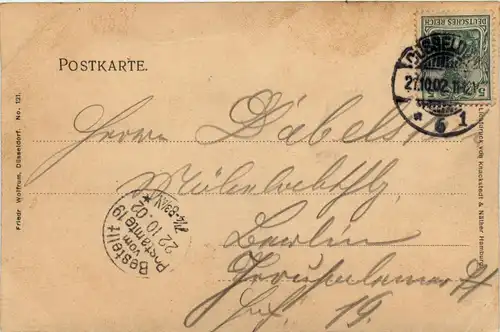 POSTKARTE.
DEUTSCHES REICH
5 5
DÜSSELDORF
21.10.02. 11-12
* 6 1
Herrn Däbel
Berlin
Jerusalemer
19.
Bestellt
vom
Postamte 19
22.10.02
Friedr. Wolfrum, Düsseldorf. No. 121.
Lichtdruck von Knackstedt & Näther Hamburg